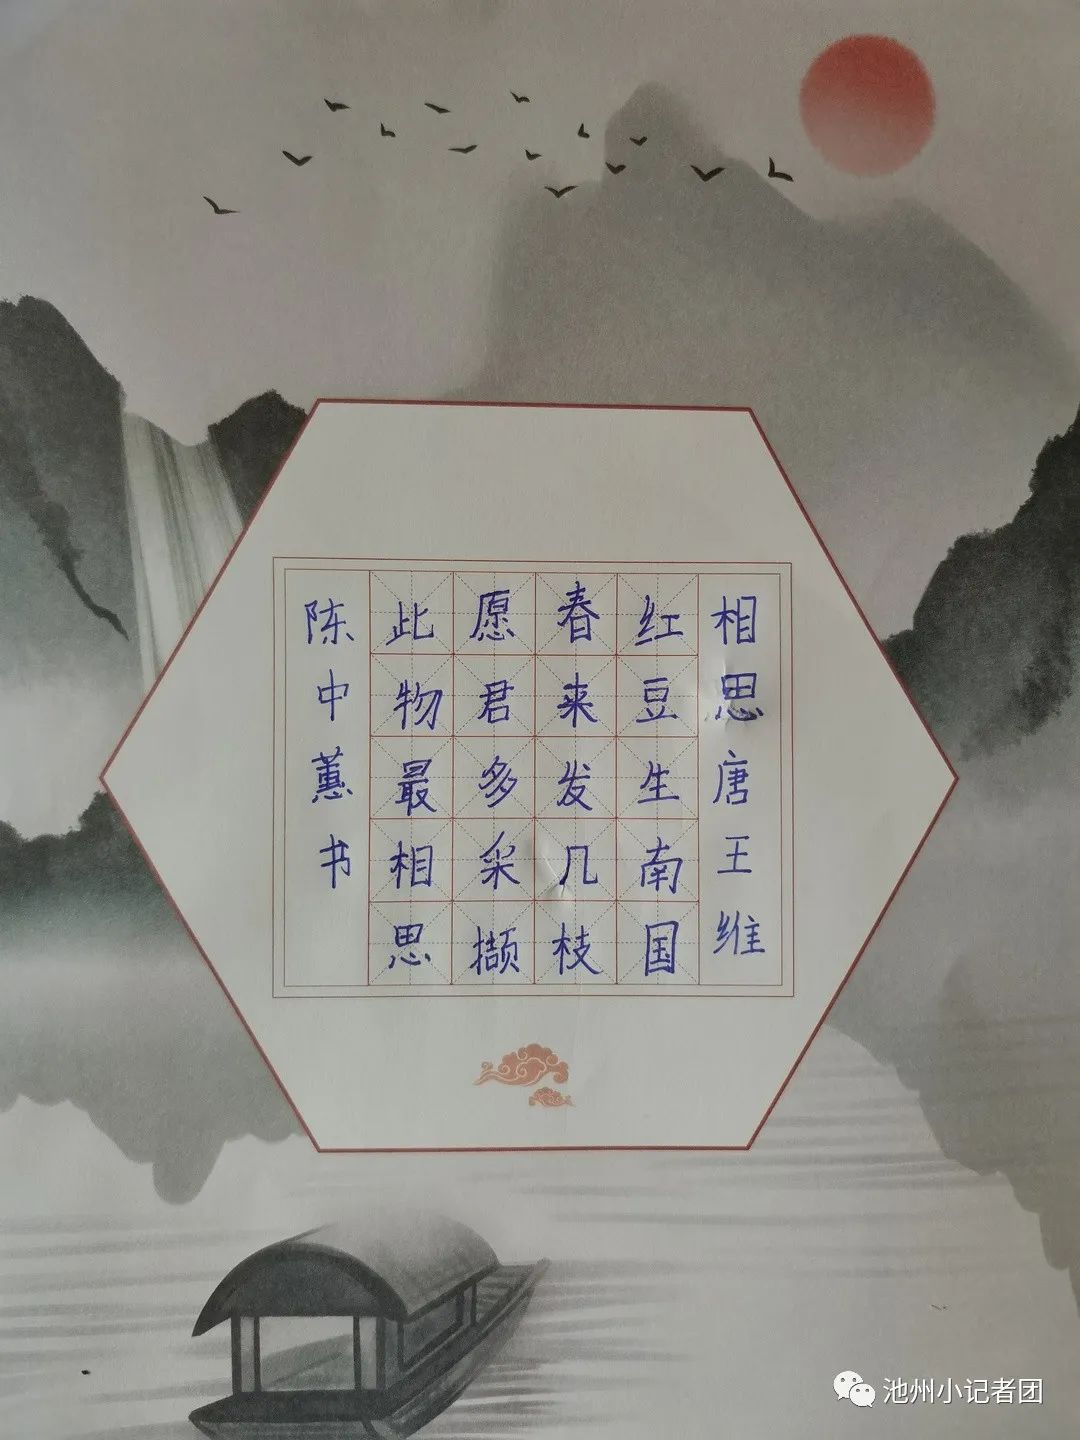 相思唐王维
红豆生南国
春来发几枝
愿君多采撷
此物最相思
陈中蕙书
池州小记者团